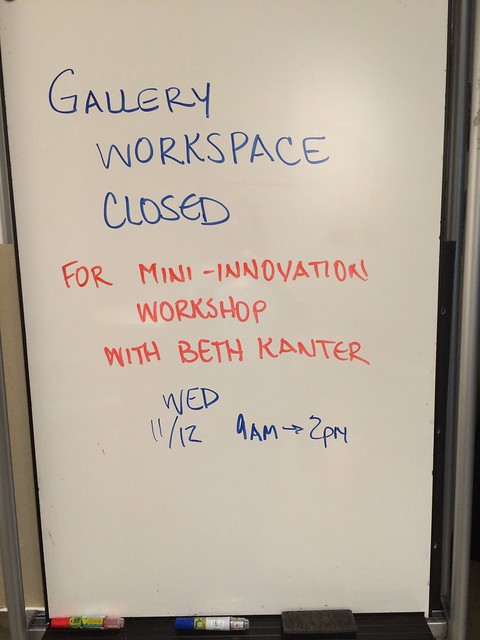 GALLERY
WORKSPACE
CLOSED
FOR MINI-INNOVATION
WORKSHOP
WITH BETH KANTER
WED
11/12 9AM→2PM